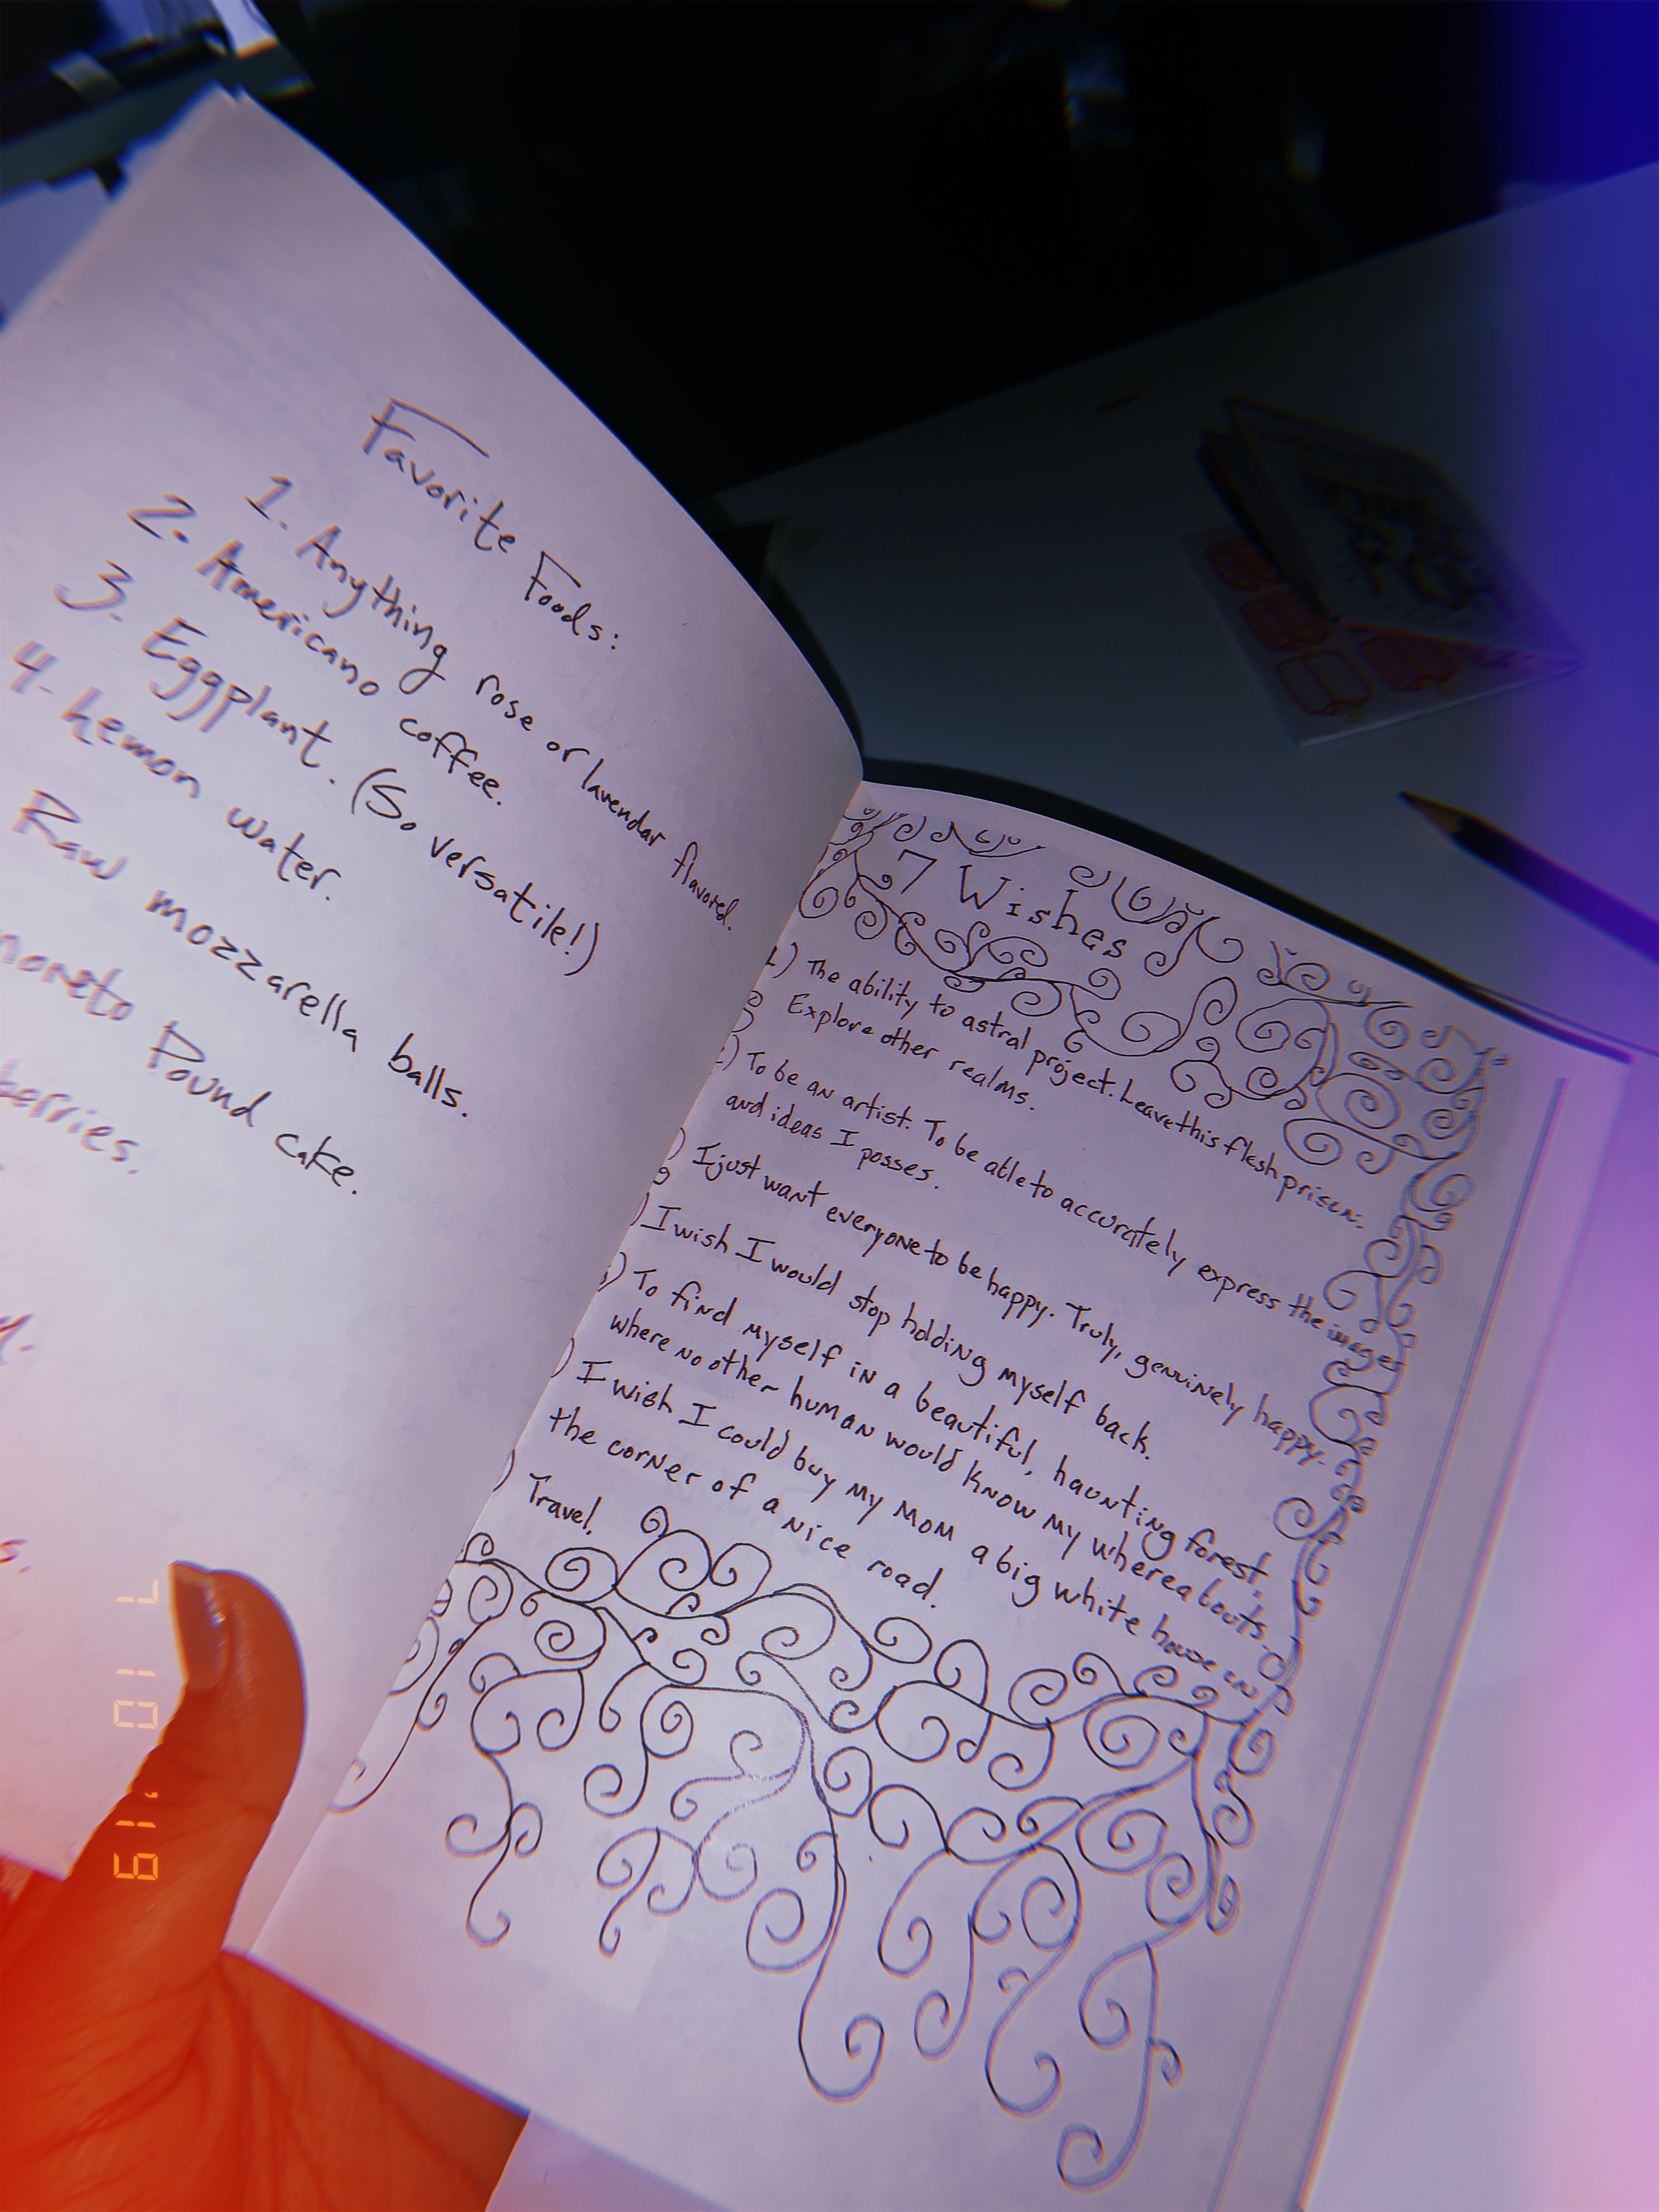 Favorite Foods:
1. Anything rose or lavendar flavored.
2. Americano coffee.
3. Eggplant. (So versatile!)
4. Lemon water.
Raw mozzarella balls.
Pound cake.
berries.
7 Wishes
1) The ability to astral project. Leave this flesh prison.
Explore other realms.
) To be an artist. To be able to accurately express the images
and ideas I posses.
) I just want everyone to be happy. Truly, genuinely happy.
) I wish I would stop holding myself back.
) To find myself in a beautiful, haunting forest,
where no other human would know my whereabouts.
) I wish I could buy my mom a big white house in
the corner of a nice road.
) Travel.
7 10 '19